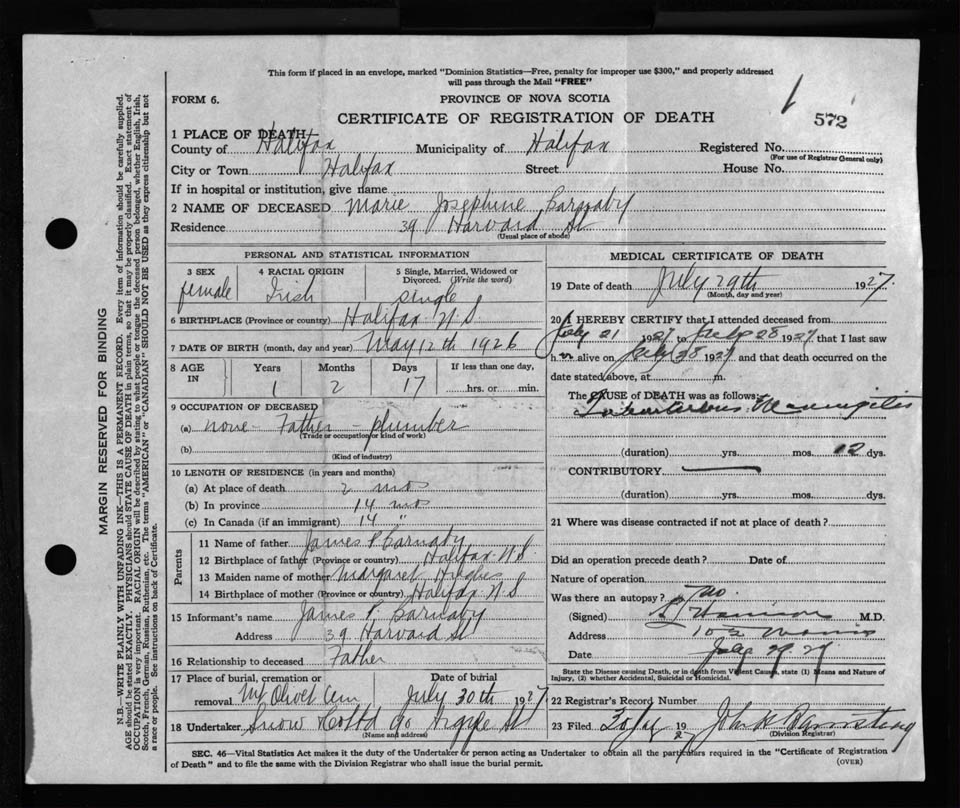 This form if placed in an envelope, marked "Dominion Statistics—Free, penalty for improper use $300," and properly addressed
will pass through the Mail "FREE"
FORM 6.
PROVINCE OF NOVA SCOTIA
CERTIFICATE OF REGISTRATION OF DEATH
1
572
1 PLACE OF DEATH
County of Halifax Municipality of Halifax Registered No.
(For use of Registrar General only)
City or Town Halifax Street House No.
If in hospital or institution, give name
2 NAME OF DECEASED Marie Josephine Barnaby
Residence 39 Harvard St
(Usual place of abode)
PERSONAL AND STATISTICAL INFORMATION
3 SEX female
4 RACIAL ORIGIN Irish
5 Single, Married, Widowed or Divorced. (Write the word) single
6 BIRTHPLACE (Province or country) Halifax N.S.
7 DATE OF BIRTH (month, day and year) May 12th 1926
8 AGE IN Years 1 Months 2 Days 17 If less than one day, hrs. or min.
9 OCCUPATION OF DECEASED
(a) none - Father - plumber
(Trade or occupation or kind of work)
(b)
(Kind of industry)
10 LENGTH OF RESIDENCE (in years and months)
(a) At place of death 2 mos
(b) In province 14 mos
(c) In Canada (if an immigrant) 14 "
Parents
11 Name of father James P Barnaby
12 Birthplace of father (Province or country) Halifax N.S.
13 Maiden name of mother Margaret Hughes
14 Birthplace of mother (Province or country) Halifax N S
15 Informant's name James P. Barnaby
Address 39 Harvard St
16 Relationship to deceased Father
17 Place of burial, cremation or removal Mt Olivet Cem
Date of burial July 30th 1927
18 Undertaker Snow & Co Ltd 90 Argyle St
(Name and address)
MEDICAL CERTIFICATE OF DEATH
19 Date of death July 29th 1927.
(Month, day and year)
20 I HEREBY CERTIFY that I attended deceased from
July 21 1927 to July 28 1927 that I last saw
h er alive on July 28 1927 and that death occurred on
date stated above, at m.
The CAUSE of DEATH was as follows:
Tuberculous Meningitis
(duration) yrs. mos. 12 dys.
CONTRIBUTORY
(duration) yrs. mos. dys.
21 Where was disease contracted if not at place of death?
Did an operation precede death? Date of
Nature of operation
Was there an autopsy? no
(Signed) M.D.
Address
Date July 29 27
State the Disease causing Death, or in death from Violent Causes, state (1) Means and Nature of
Injury, (2) whether Accidental, Suicidal or Homicidal.
22 Registrar's Record Number
23 Filed 192
(Division Registrar)
SEC. 46—Vital Statistics Act makes it the duty of the Undertaker or person acting as Undertaker to obtain all the particulars required in the "Certificate of Registration
of Death" and to file the same with the Division Registrar who shall issue the burial permit.
(OVER)
MARGIN RESERVED FOR BINDING
N.B.—WRITE PLAINLY WITH UNFADING INK—THIS IS A PERMANENT RECORD. Every item of information should be carefully supplied.
AGE should be stated EXACTLY. PHYSICIANS should STATE CAUSE OF DEATH in plain terms, so that it may be properly classified. Exact statement of
OCCUPATION is very important. RACIAL ORIGIN will be described by stating to what people or tongue the deceased person belonged, whether English, Irish,
Scotch, French, German, Russian, Ruthenian, etc. The terms "AMERICAN" or "CANADIAN" SHOULD NOT BE USED as they express citizenship but not
a race or people. See instructions on back of Certificate.